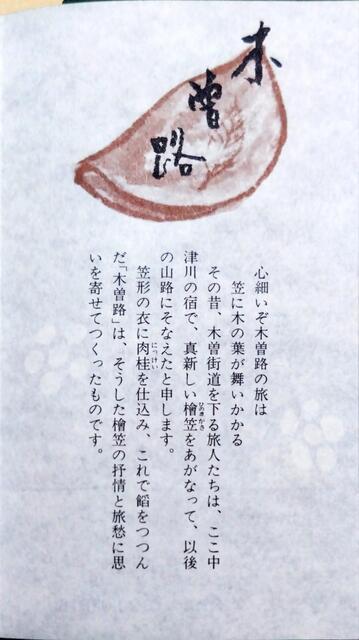 木曽路
心細いぞ木曽路の旅は
笠に木の葉が舞いかかる
その昔、木曽街道を下る旅人たちは、ここ中
津川の宿で、真新しい檜笠をあがなって、以後
ひのきがさ
の山路にそなえたと申します。
笠形の衣に肉桂を仕込み、これで餡をつつん
にっけい
だ「木曽路」は、そうした檜笠の抒情と旅愁に思
いを寄せてつくったものです。